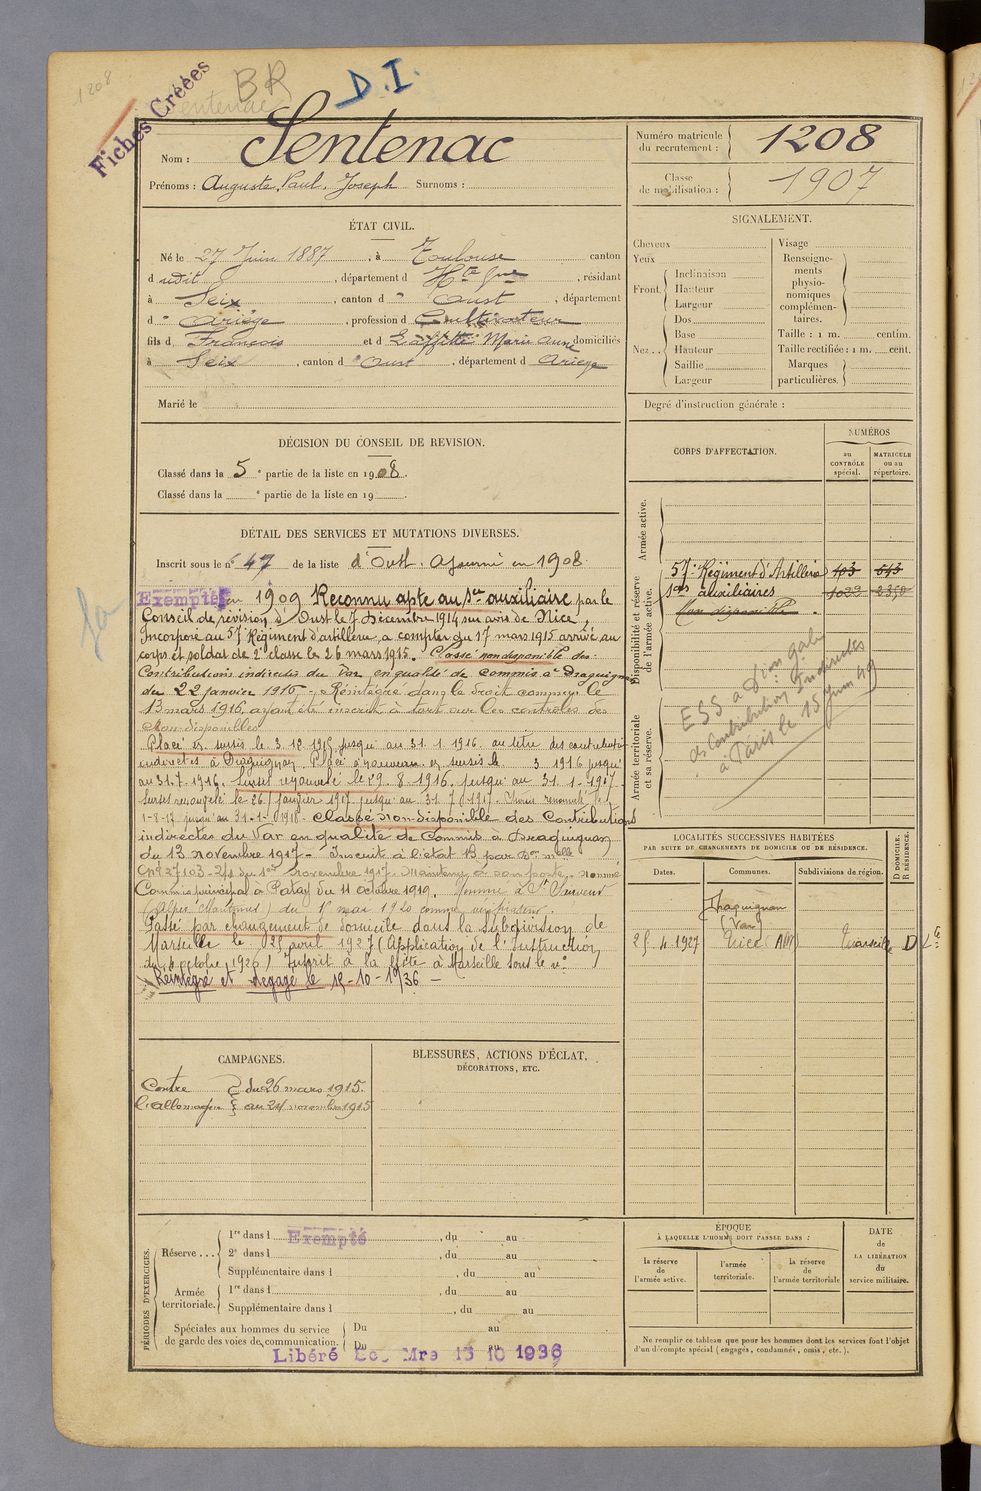 1208
Fiches Créées
BR
D.I.
Sentenac
Nom : Sentenac
Prénoms : Auguste, Paul, Joseph Surnoms :
Numéro matricule du recrutement : 1208
Classe de mobilisation : 1907
ÉTAT CIVIL.
Né le 27 Juin 1887, à Toulouse canton
dudit, département d Hte Gne, résidant
à Seix, canton d" Oust, département
d" Ariège, profession d Cultivateur
fils d François et d Laffitte Marie Anne domiciliés
à Seix, canton d" Oust, département d Ariège
Marié le
SIGNALEMENT.
Cheveux
Yeux
Front.
Inclinaison
Hauteur
Largeur
Nez..
Dos
Base
Hauteur
Saillie
Largeur
Visage
Renseignements physionomiques complémentaires.
Taille : 1 m. centim.
Taille rectifiée : 1 m. cent.
Marques particulières.
Degré d'instruction générale :
DÉCISION DU CONSEIL DE REVISION.
Classé dans la 5e partie de la liste en 1908.
Classé dans la e partie de la liste en 19
DÉTAIL DES SERVICES ET MUTATIONS DIVERSES.
Inscrit sous le n° 47 de la liste d'Oust. Ajourné en 1908.
Exempté en 1909 Reconnu apte au sce auxiliaire par le
Conseil de révision d'Oust le 7 Décembre 1914 sur avis de Nice
Incorporé au 57e Régiment d'artillerie, a compter du 17 mars 1915 arrivé au
corps et soldat de 2e classe le 26 mars 1915. Classé non disponible des
Contributions indirectes du Var en qualité de commis à Draguignan
du 22 janvier 1916 - Réintégré dans le droit commun le
13 mars 1916, ayant été inscrit à tort sur les contrôles des
Non-disponibles
Placé en sursis le 3.12.1915 jusqu'au 31.1.1916 au titre des contributions
indirectes à Draguignan. Placé à nouveau en sursis le 3 1916 jusqu'
au 31.7.1916. Sursis renouvelé le 29.8.1916 jusqu'au 31-1-1917
Sursis renouvelé le 26 Janvier 1917 jusqu'au 31.7.1917. Sursis renouvelé le
1-8-17 jusqu'au 31-1-1918. Classé Non-disponible des Contributions
indirectes du Var en qualité de Commis à Draguignan
du 13 novembre 1917 - Inscrit à l'état B par Don mlle
novembre 1917. nommé
Commis principal à Paray du 11 octobre 1919. Nommé à St Sauveur
(Alpes Maritimes) du 1er mai 1920 comme
Passé par changement de domicile dans la subdivision de
Marseille le 25 avril 1927 (Application de l'Instruction
du 4 octobre 1926) Inscrit à la liste à Marseille sous le n°
Réintégré et dégagé le 15-10-1936 -
CORPS D'AFFECTATION.
NUMÉROS
au CONTRÔLE spécial.
MATRICULE ou au répertoire.
Armée active.
Disponibilité et réserve de l'armée active.
57e Régiment d'Artillerie 403 643
Sces auxiliaires 1029 2350
Non disponible
Armée territoriale et sa réserve.
ESS
des Contributions Indirectes
à Paris le 15 Juin 49
LOCALITÉS SUCCESSIVES HABITÉES
PAR SUITE DE CHANGEMENTS DE DOMICILE OU DE RÉSIDENCE.
Dates. Communes. Subdivisions de région.
D DOMICILE. R RÉSIDENCE.
Draguignan
(Var)
25.4.1927 Nice (AM) Marseille D
CAMPAGNES.
Contre l'Allemagne
du 26 mars 1915.
au 24 novembre 1915
BLESSURES, ACTIONS D'ÉCLAT,
DÉCORATIONS, ETC.
PÉRIODES D'EXERCICES.
Réserve...
1re dans l Exempté, du au
2e dans l, du au
Supplémentaire dans l, du au
Armée territoriale.
1re dans l, du au
Supplémentaire dans l, du au
Spéciales aux hommes du service de garde des voies de communication.
Du au
Du au
Libéré 15 10 1936
ÉPOQUE
À LAQUELLE L'HOMME DOIT PASSER DANS :
la réserve de l'armée active.
l'armée territoriale.
la réserve de l'armée territoriale
DATE de LA LIBÉRATION du service militaire.
Ne remplir ce tableau que pour les hommes dont les services font l'objet
d'un décompte spécial (engagés, condamnés, omis, etc.).